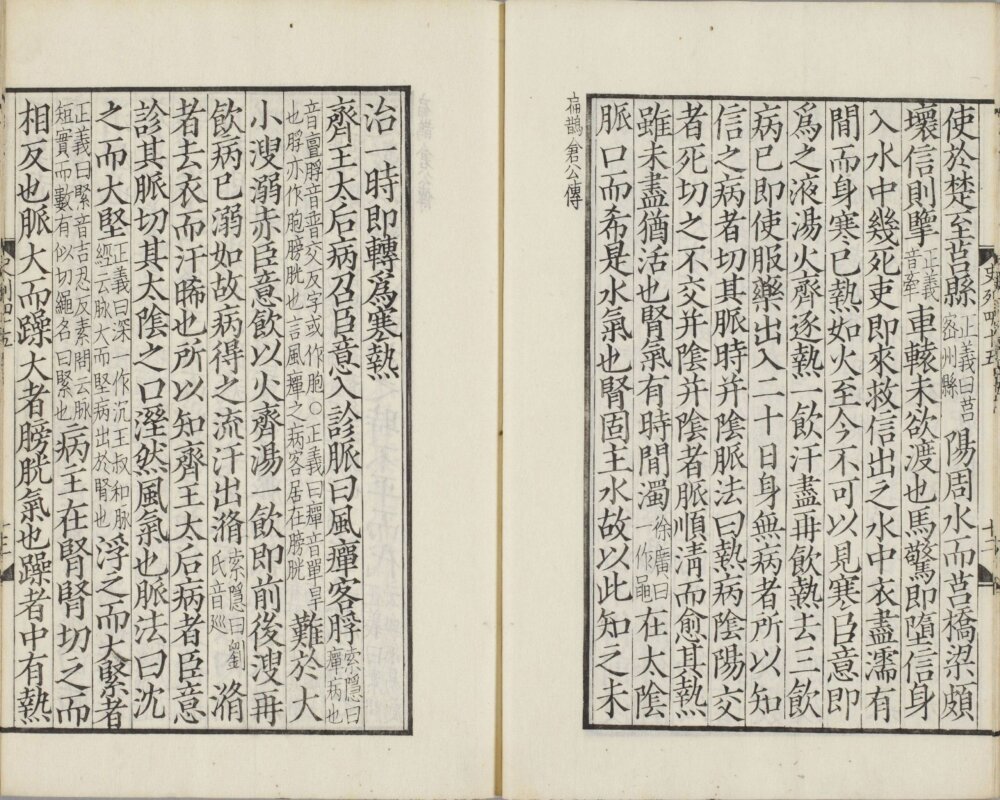 扁鵲倉公傳
使於楚至莒縣正義曰莒密州縣陽周水而莒橋梁頗
壞信則擥正義音牽車轅未欲渡也馬驚即墮信身
入水中幾死吏即來救信出之水中衣盡濡有
閒而身寒已熱如火至今不可以見寒臣意即
爲之液湯火齊逐熱一飲汗盡再飲熱去三飲
病已即使服藥出入二十日身無病者所以知
信之病者切其脈時并陰脈法曰熱病陰陽交
者死切之不交并陰并陰者脈順清而愈其熱
雖未盡猶活也腎氣有時閒濁徐廣曰一作黽在太陰
脈口而希是水氣也腎固主水故以此知之未
史列四十五
十二
治一時即轉爲寒熱
齊王太后病召臣意入診脈曰風癉客脬索隱曰癉病也
音亶脬音普交反字或作胞○正義曰癉音單旱也脬亦作胞膀胱也言風癉之病客居在膀胱難於大
小溲溺赤臣意飲以火齊湯一飲即前後溲再
飲病已溺如故病得之流汗出滫索隱曰劉氏音巡滫
者去衣而汗晞也所以知齊王太后病者臣意
診其脈切其太陰之口溼然風氣也脈法曰沈
之而大堅正義曰深一作沉王叔和脈經云脈大而堅病出於腎也浮之而大緊者
正義曰緊音吉忍反素問云脈短實而數有似切繩名曰緊也病主在腎腎切之而
相反也脈大而躁大者膀胱氣也躁者中有熱